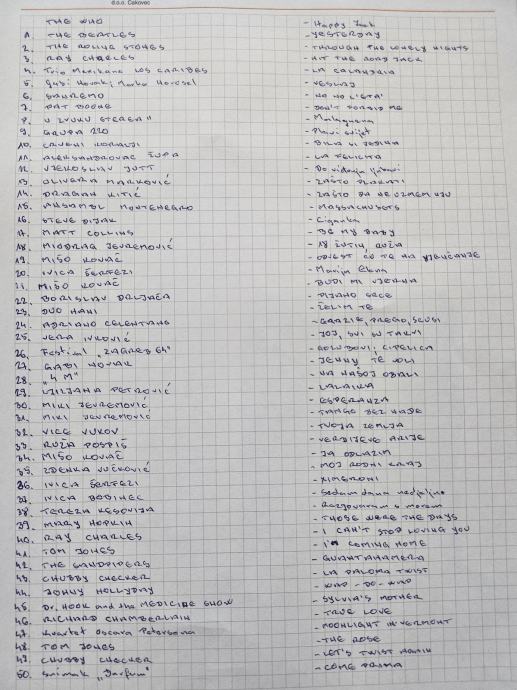 d.o.o. Čakovec
THE WHO - Happy Jack
1. THE BEATLES - YESTERDAY
2. THE ROLLING STONES - THROUGH THE LONELY NIGHTS
3. RAY CHARLES - HIT THE ROAD JACK
4. Trio Meksikano LOS CARIBES - LA CALANDRIA
5. Gabi Novak, Marko Novosel - VESLAJ
6. SANREMO - NO HO L'ETÀ
7. PAT BOONE - DON'T FORBID ME
8. U ZVUKU STEREA" - Malaguena
9. GRUPA 220 - Plavi svijet
10. CRVENI KORALJI - BILA SI JEDINA
11. ALEKSANDROVAC ŽUPA - LA FELICITA
12. VJEKOSLAV JUTT - Do viđenja ljubavi
13. OLIVERA MARKOVIĆ - ZAŠTO PLAKATI
14. DRAGAN KITIĆ - ZAŠTO DA NE UZMEM NJU
15. ANSAMBL MONTENEGRO - MASSACHUSETS
16. STEVE - Ciganka
17. MATT COLLINS - BE MY BABY
18. MIODRAG JEVREMOVIĆ - 18 ŽUTIH RUŽA
19. MIŠO KOVAČ - ODVEST ĆU TE NA VJENČANJE
20. IVICA ŠERFEZI - Marija Elena
21. MIŠO KOVAČ - BUDI MI VJERNA
22. BORISLAV DRLJAČA - PIJANO SRCE
23. DUO HANI - ŽELIM TE
24. ADRIANO CELENTANO - GRAZIE, PREGO, SCUSI
25. VERA IVKOVIĆ - JOJ, SVI SU TAKVI
26. Festival „ZAGREB 64" - GOLUBOVI, CIPELICA
27. GABI NOVAK - JENNY TE VOLI
28. „4 M" - NA NAŠOJ OBALI
29. LJILJANA PETROVIĆ - LALAIKA
30. MIKI JEVREMOVIĆ - ESPERANZA
31. MIKI JEVREMOVIĆ - TANGO BEZ NADE
32. VICE VUKOV - TVOJA ZEMLJA
33. RUŽA POSPIŠ - VERDIJEVE ARIJE
34. MIŠO KOVAČ - JA ODLAZIM
35. ZDENKA VUČKOVIĆ - MOJ RODNI KRAJ
36. IVICA ŠERFEZI - XIMERONI
37. IVICA BOBINEC - Sedam dana nedjeljno
38. TEREZA KESOVIJA - Razgovaram s morem
39. MARY HOPKIN - THOSE WERE THE DAYS
40. RAY CHARLES - I CAN'T STOP LOVING YOU
41. TOM JONES - I'M COMING HOME
42. THE SANDPIPERS - GUANTANAMERA
43. CHUBBY CHECKER - LA PALOMA TWIST
44. JONNY HOLLYDAY - WAP-DO-WAP
45. Dr. HOOK and the MEDICINE SHOW - SYLVIA'S MOTHER
46. RICHARD CHAMBERLAIN - TRUE LOVE
47. Kvartet Oscara Petersona - MOONLIGHT IN VERMONT
48. TOM JONES - THE ROSE
49. CHUBBY CHECKER - LET'S TWIST AGAIN
50. Snimak „Parfum" - COME PRIMA